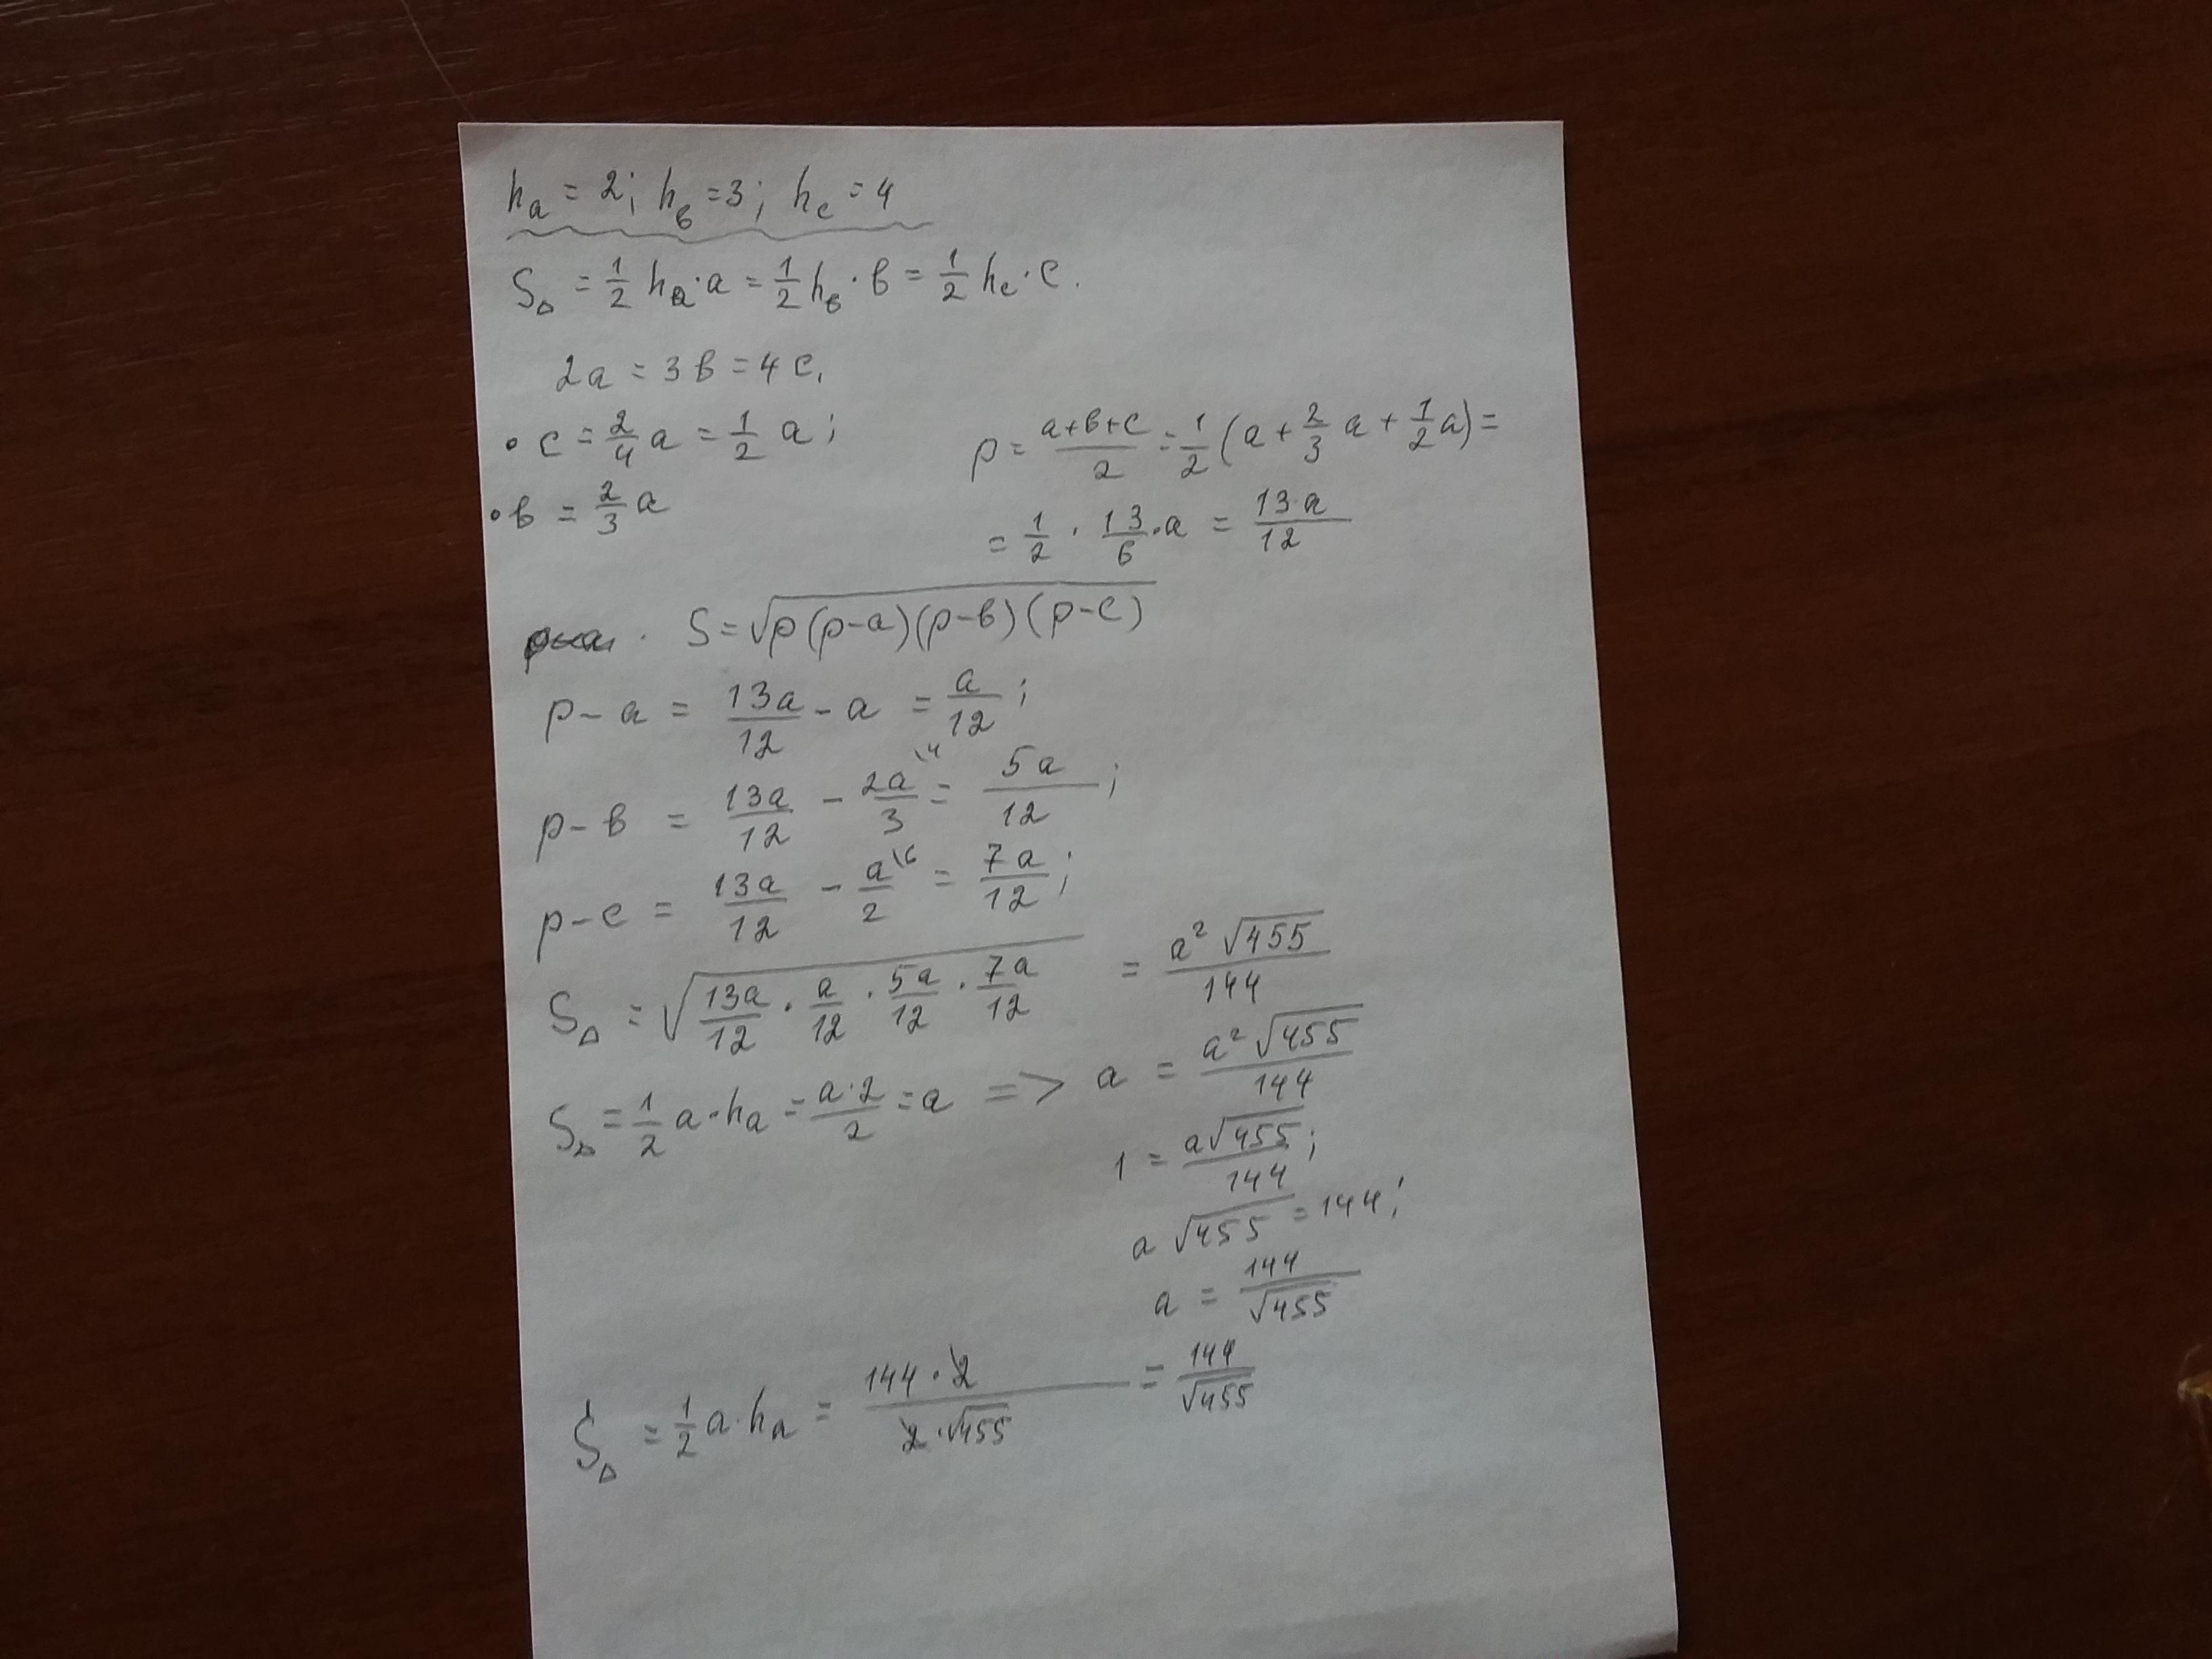 hₐ = 2; hв = 3; hс = 4
S△ = 1/2 hₐ·a = 1/2 hв·в = 1/2 hс·с.
2a = 3в = 4с.
• с = 2/4 a = 1/2 a;
• в = 2/3 a
p = (a+в+с)/2 = 1/2 (a + 2/3 a + 1/2 a) =
= 1/2 · 13/6 · a = 13·a/12
S = √(p(p-a)(p-в)(p-с))
p - a = 13a/12 - a = a/12;
p - в = 13a/12 - 2a/3 \4 = 5a/12;
p - с = 13a/12 - a/2 \6 = 7a/12;
S△ = √(13a/12 · a/12 · 5a/12 · 7a/12) = a²√455/144
S△ = 1/2 a·hₐ = a·2/2 = a => a = a²√455/144
1 = a√455/144;
a√455 = 144;
a = 144/√455
S△ = 1/2 a·hₐ = 144·2/2·√455 = 144/√455